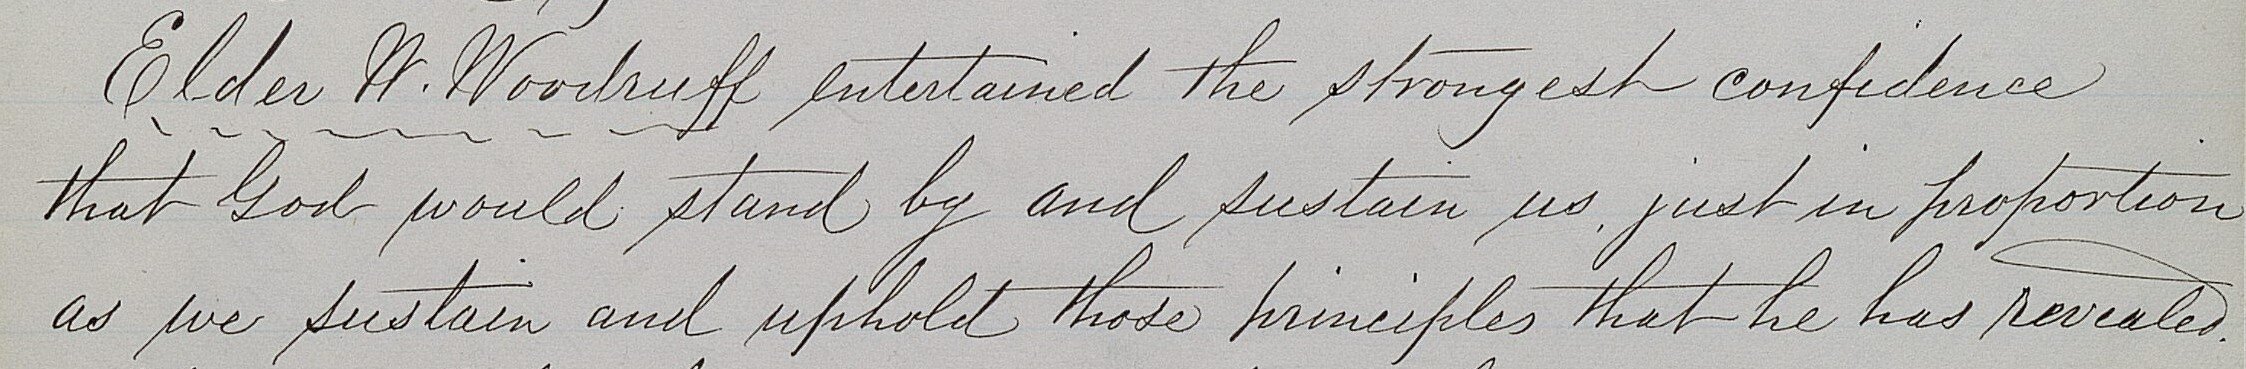 Elder W. Woodruff entertained the strongest confidence
that God would stand by and sustain us, just in proportion
as we sustain and uphold those principles that he has revealed.